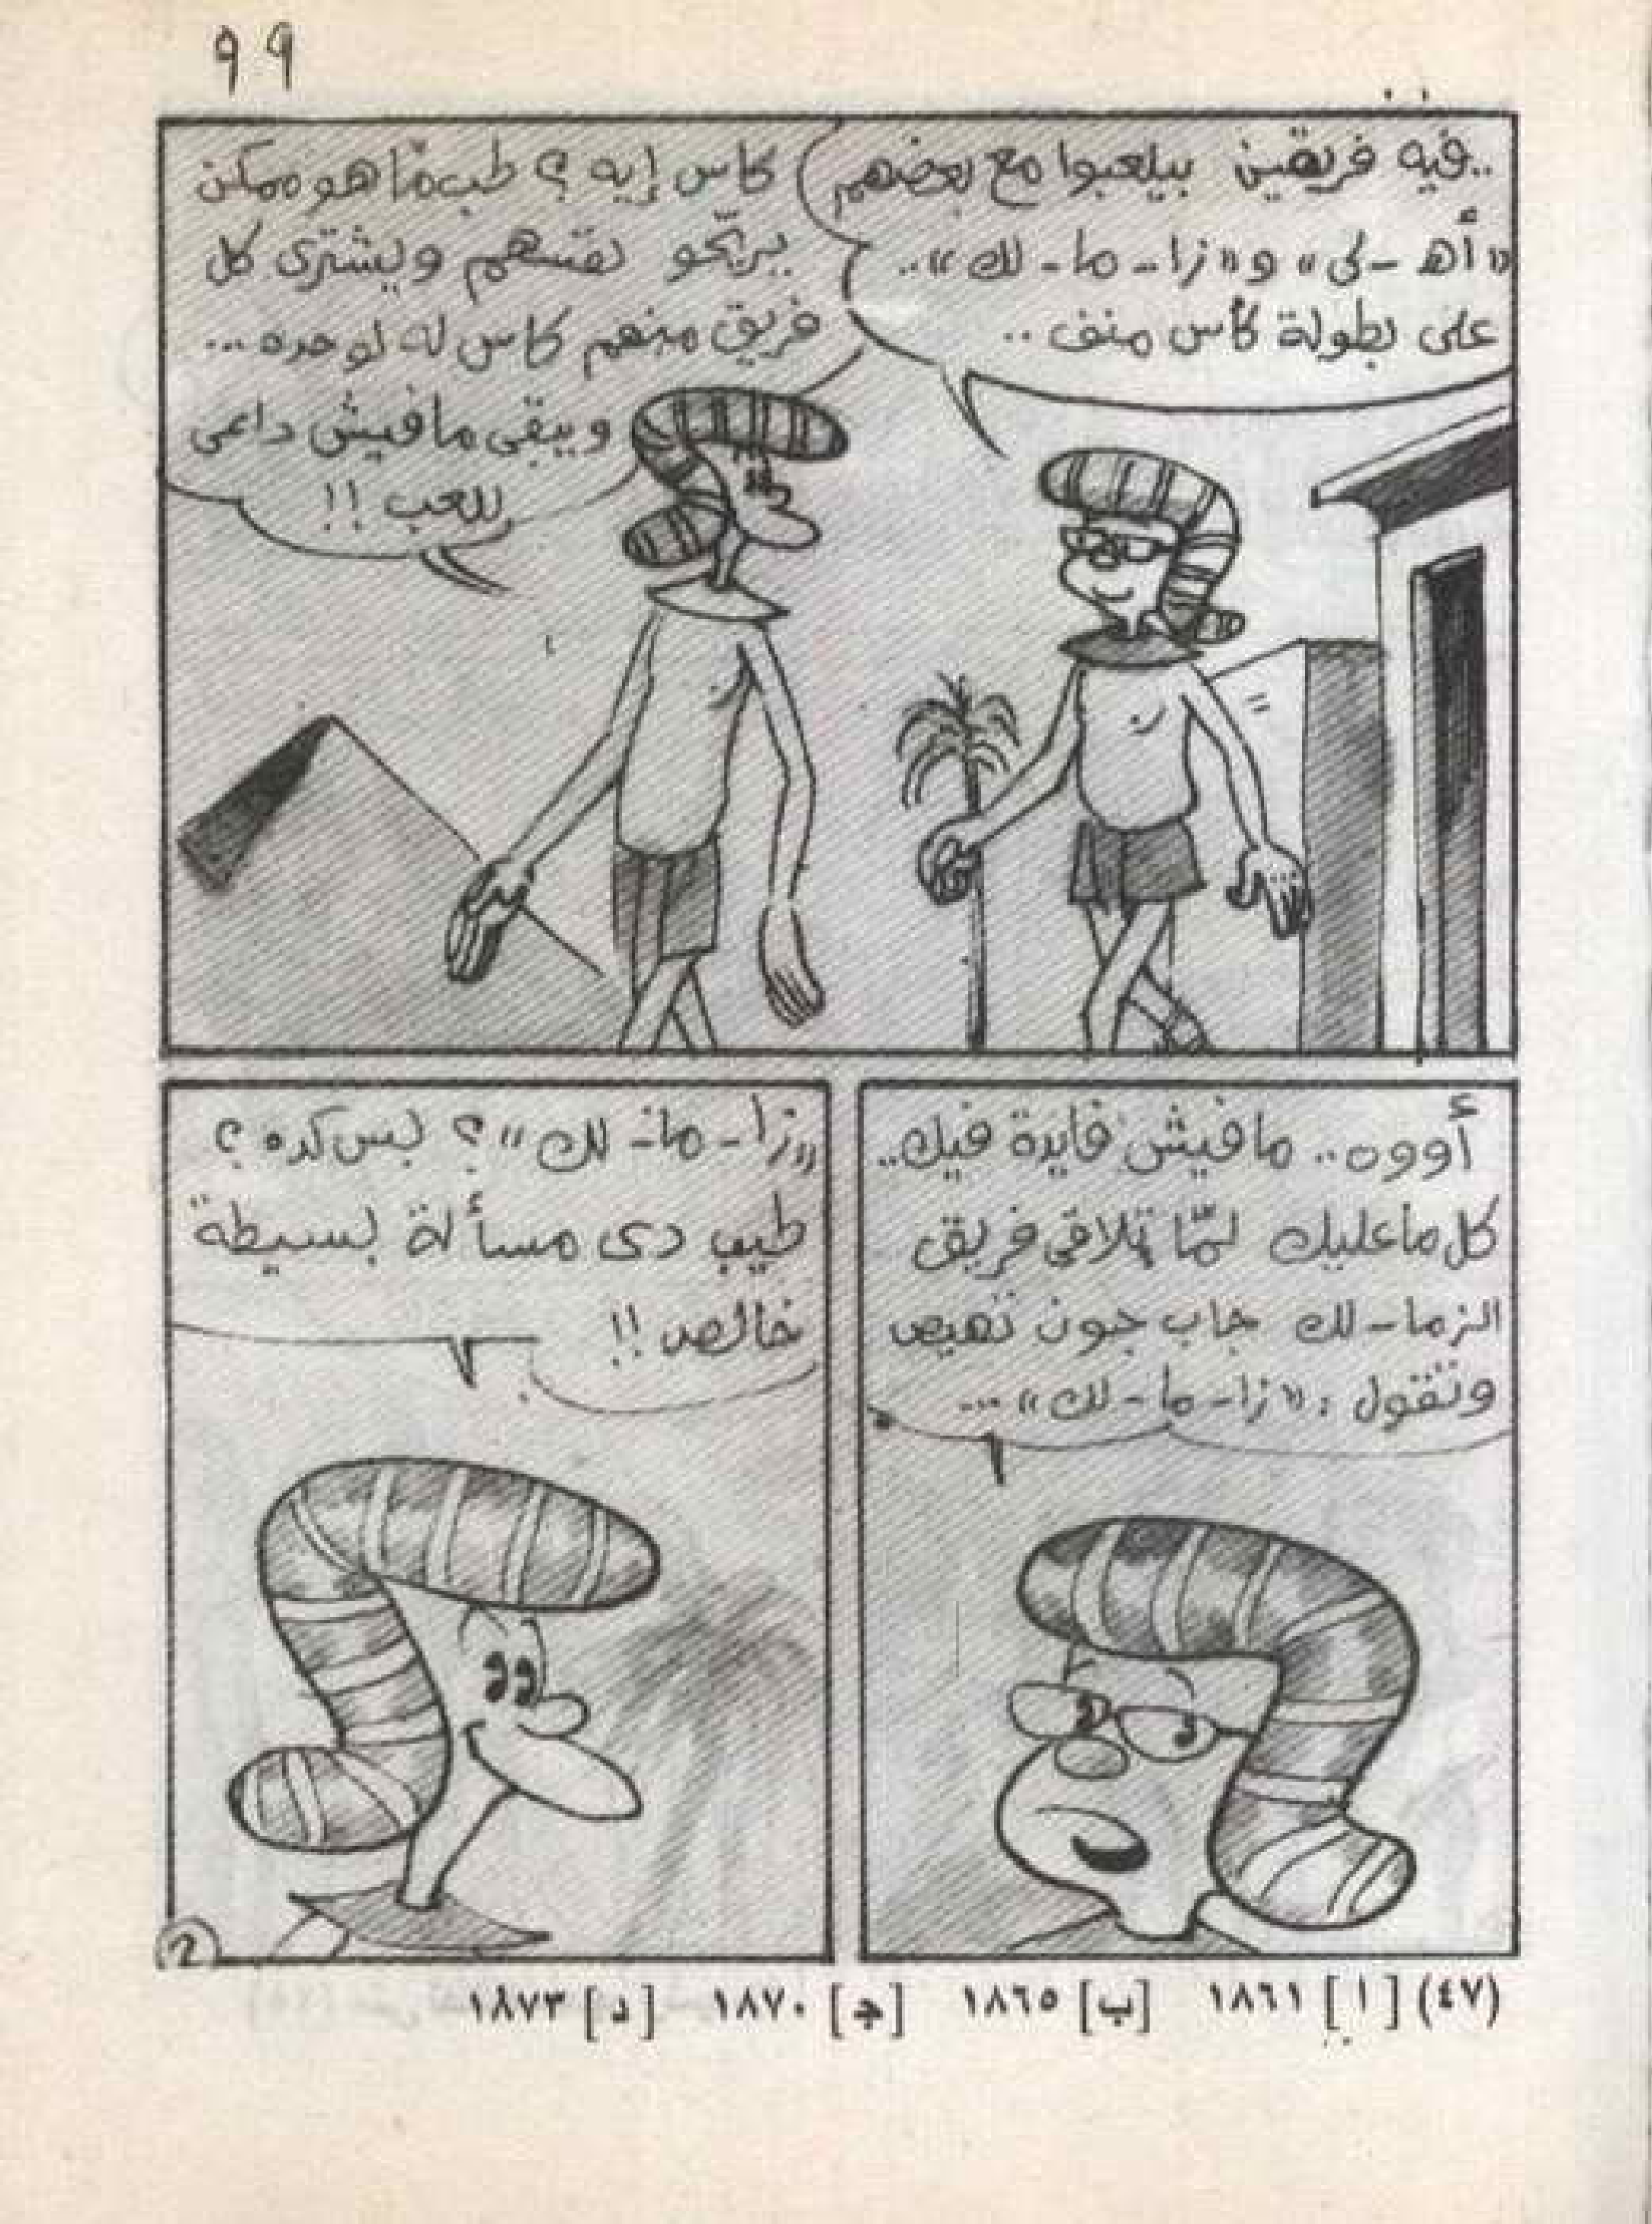 ٩٩
..فيه فريقين بيلعبوا مع بعضهم
«أهـ - لى» و«زا - ما - لك»..
على بطولة كأس منف ..
كاس إيه ؟ طب ما هو ممكن
يريّحو نفسهم ويشترى كل
فريق منهم كاس له لوحده ...
ويبقى مافيش داعى
للعب !!
أووه .. مافيش فايدة فيك ..
كل ما عليك لمّا تلاقى فريق
الزما - لك جاب جون تهيص
وتقول : «زا - ما - لك» ...
«زا - ما - لك» ؟ بس كده ؟
طيب دى مسألة بسيطة
خالص !!
2
(٤٧) [ ا ] ١٨٦١ [ب] ١٨٦٥ [جـ] ١٨٧٠ [د] ١٨٧٣